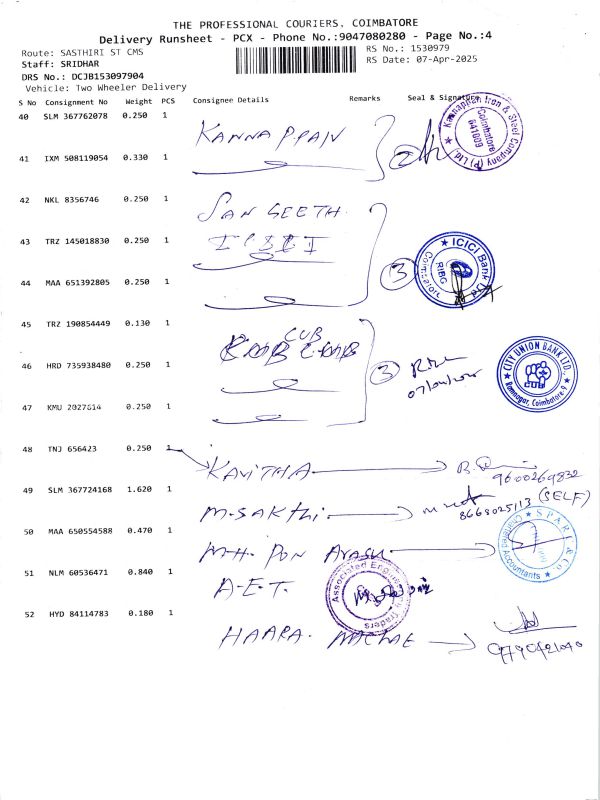 THE PROFESSIONAL COURIERS, COIMBATORE
Delivery Runsheet - PCX - Phone No.:9047080280 - Page No.:4
Route: SASTHIRI ST CMS
RS No.: 1530979
Staff: SRIDHAR
RS Date: 07-Apr-2025
DRS No.: DCJB153097904
Vehicle: Two Wheeler Delivery
S No Consignment No Weight PCS Consignee Details Remarks Seal & Signature
40 SLM 367762078 0.250 1
KANNAPPAN
Kannapiran Iron & Steel Company (P) Ltd. Coimbatore 641009
41 IXM 508119054 0.330 1
42 NKL 8356746 0.250 1
SANGEETH.
43 TRZ 145018830 0.250 1
ICICI
3
ICICI Bank RIBG Coimbatore
44 MAA 651392805 0.250 1
45 TRZ 190854449 0.130 1
CUB
46 HRD 735938480 0.250 1
3
CITY UNION BANK LTD., Ramnagar, Coimbatore 9
47 KMU 2027614 0.250 1
48 TNJ 656423 0.250 1
KAVITHA
9600269832
49 SLM 367724168 1.620 1
M.SAKthi
8668025113 (SELF)
50 MAA 650554588 0.470 1
M.H. PON Arasu
SPARK & Co. Chartered Accountants
51 NLM 60536471 0.840 1
A.E.T.
Associated Engineering Traders
52 HYD 84114783 0.180 1
HAARA.
9790421040